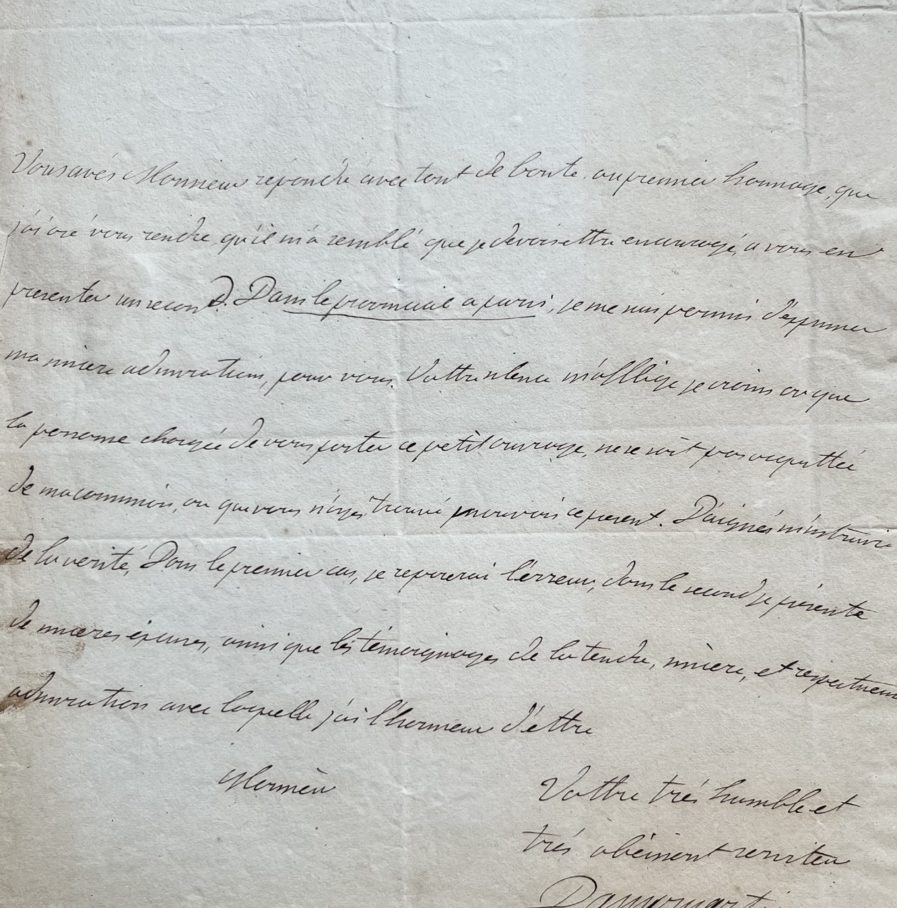 Vous avés Monsieur répondu avec tant de bonté, au premier hommage, que
j'ai osé vous rendre, qu'il m'a semblé que je devois ettre encouragé, a vous en
presenter un second. Dans le provincial a paris, je me suis permis d'exprimer
ma sincere admiration, pour vous. Vottre silence m'afflige, je crains ou que
la personne chargée de vous porter ce petit ouvrage, ne se soit pas acquittée
de ma commission, ou que vous n'ayés trouvé ce present. Daignés m'instruire
de la verité. Dans le premier cas, je reparerai l'érreur, dans le second je présente
de sinceres éxcuses, ainsi que les témoignages de la tendre, sincere, et respectueuse
admiration avec laquelle j'ai l'honneur d'éttre
Monsieur
Vottre trés humble et
trés obéissent serviteur